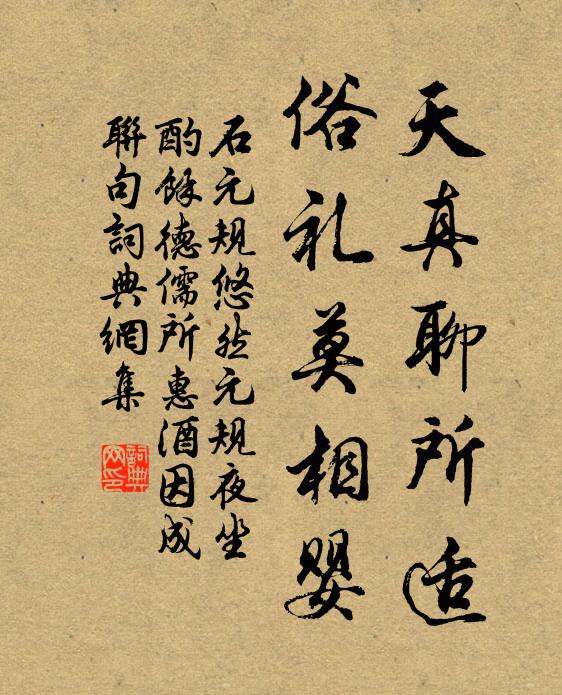 天真聊所适
俗礼莫相婴
石元规悠然元规夜坐
酌馀德儒所惠酒因成
聯句詞典網集
詞典
网印